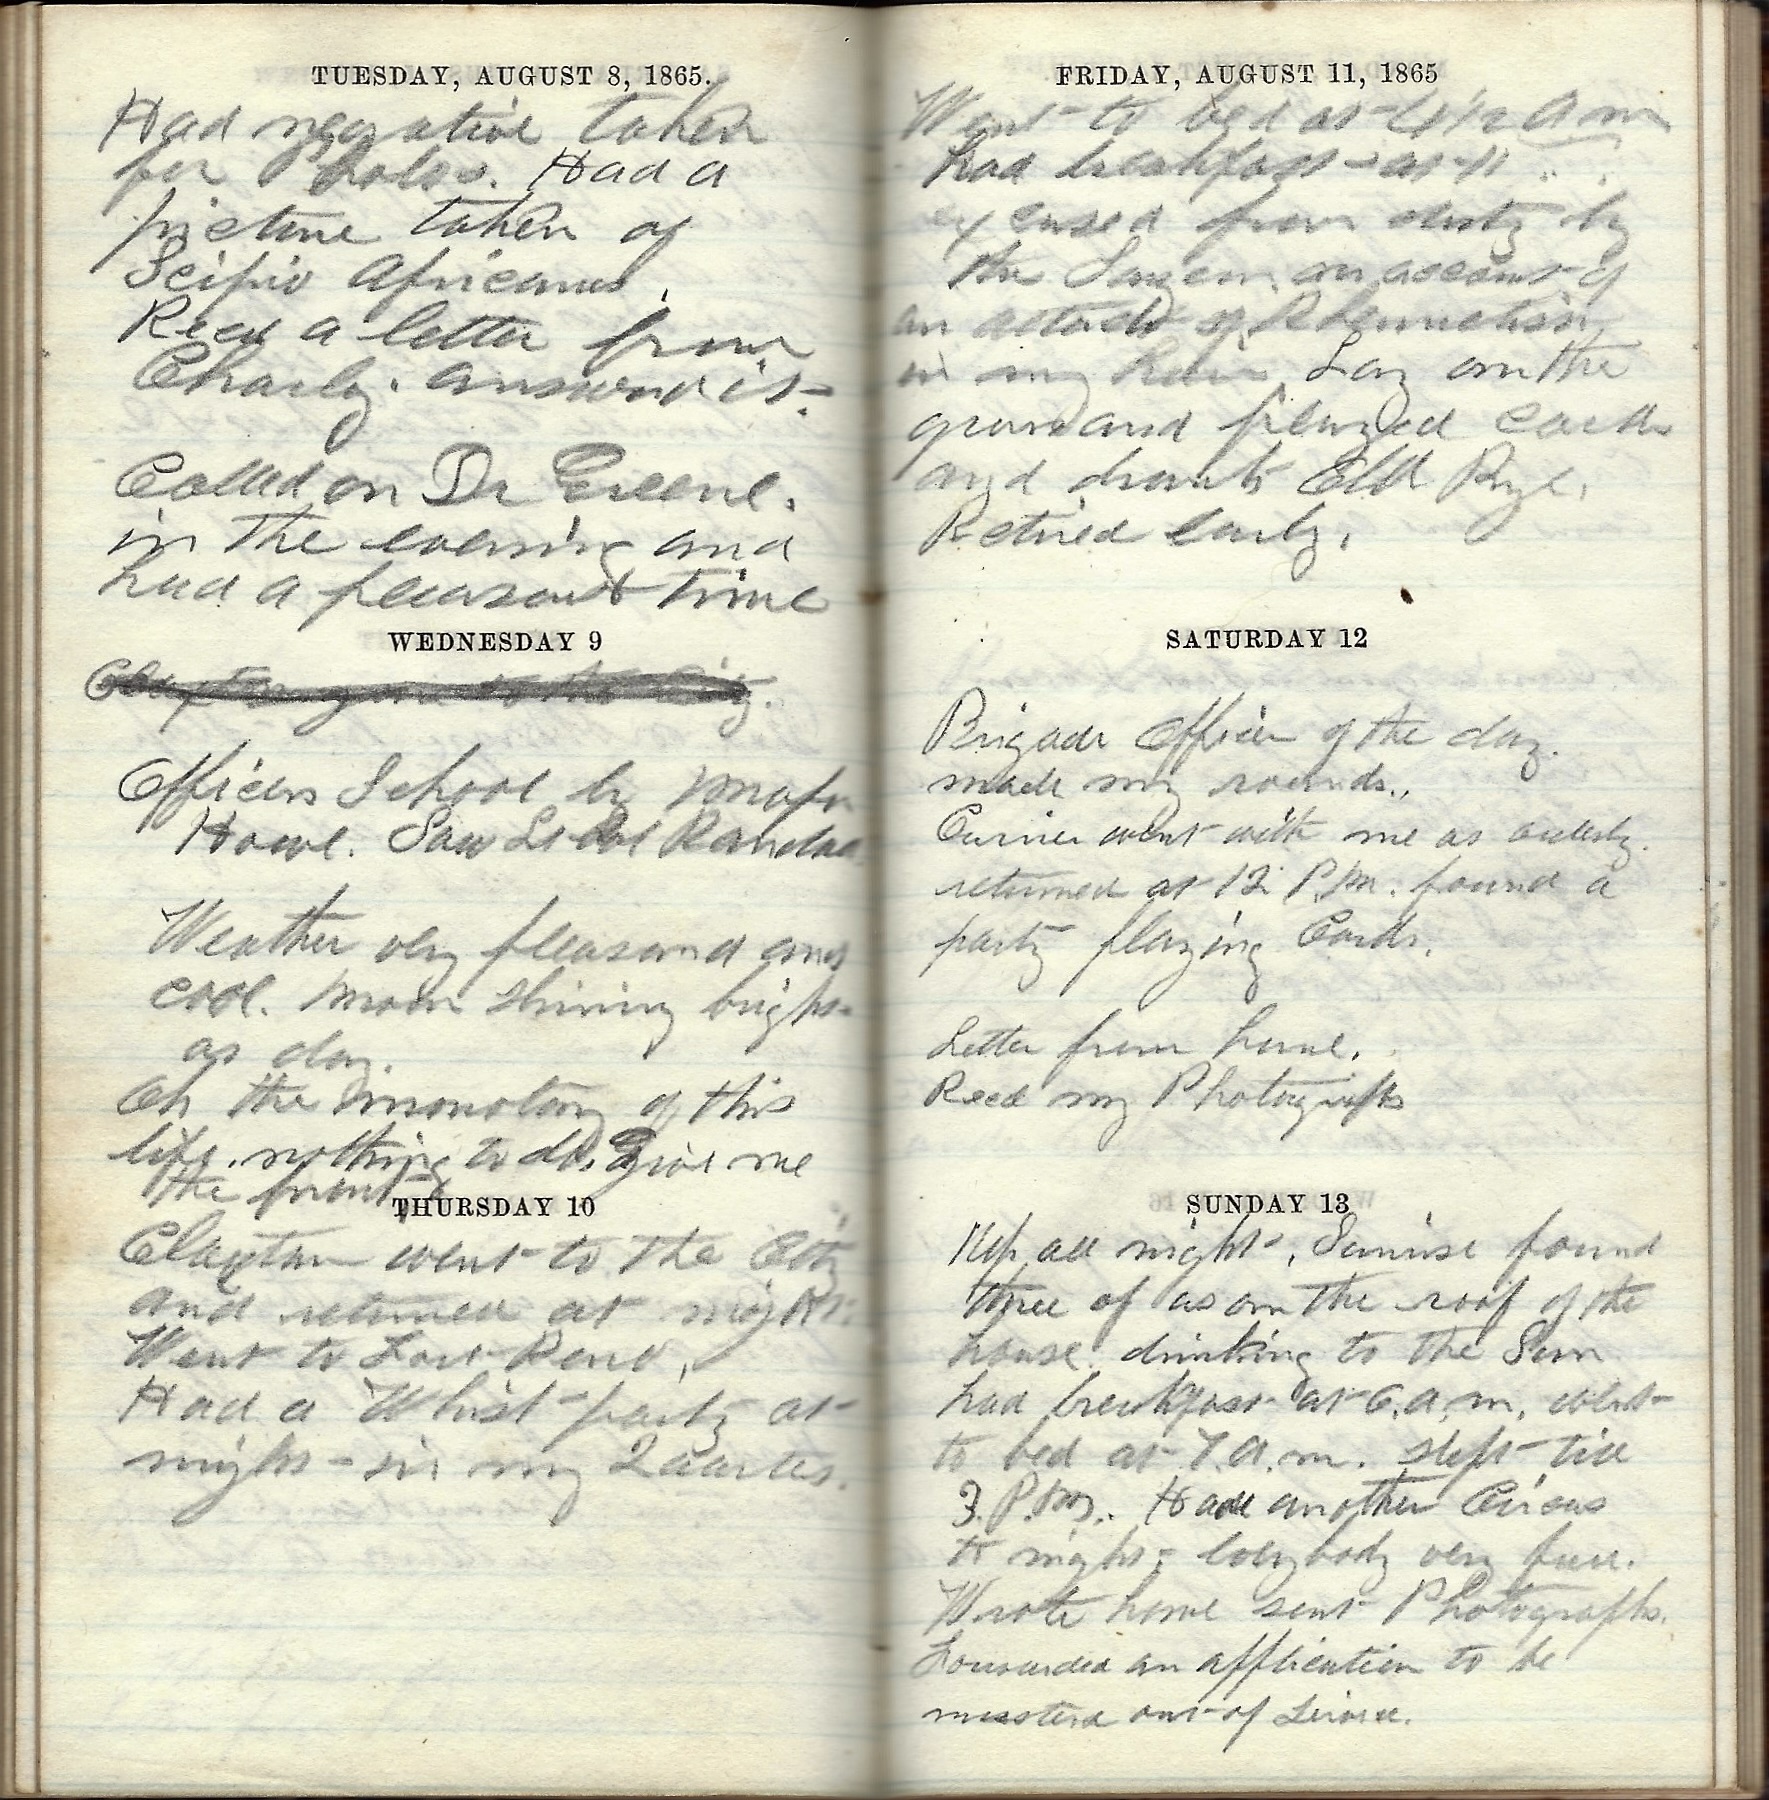 TUESDAY, AUGUST 8, 1865.
Had negative taken
for Photos. Had a
picture taken of
Scipio Africanus.
Recd a letter from
Charly. answerd it.
Called on Dr Greene.
in the evening and
had a pleasant time
WEDNESDAY 9
Clayton gone to the City.
Officers School by Major
Howe. Saw Lt Col Randall
Weather very pleasand and
cool. Moon shining bright
as day.
Oh the monotony of this
life. nothing to do. Give me
the front
THURSDAY 10
Clayton went to the City
and returned at night.
Went to Fort Reno,
Had a Whist party at
night in my Quarters.
FRIDAY, AUGUST 11, 1865
Went to bed at 4 1/2 a m
had breakfast at 11 " "
excused from duty by
the Surgeon on account of
an attack of Rheumatism
in my Lay on the
ground played cards
and drank Old Rye.
Retired early.
SATURDAY 12
Brigade Officer of the day.
made my rounds.
Currier went with me as orderly.
returned at 12 P.M. found a
party playing Cards.
Letter from home.
Recd my Photographs
SUNDAY 13
Up all night, Sunrise found
three of us on the roof of the
house drinking to the Sun
had breakfast at 6. a. m. went
to bed at 7. a. m. slept till
3. P.M. Had another Circus
to night. everybody very full.
Wrote home sent Photographs.
Forwarded an application to be
musterd out of Service.